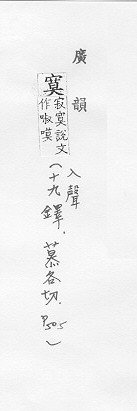 廣韻
寞
寂寞說文
作㖆嗼
入聲
(十九鐸.慕各切.P505)